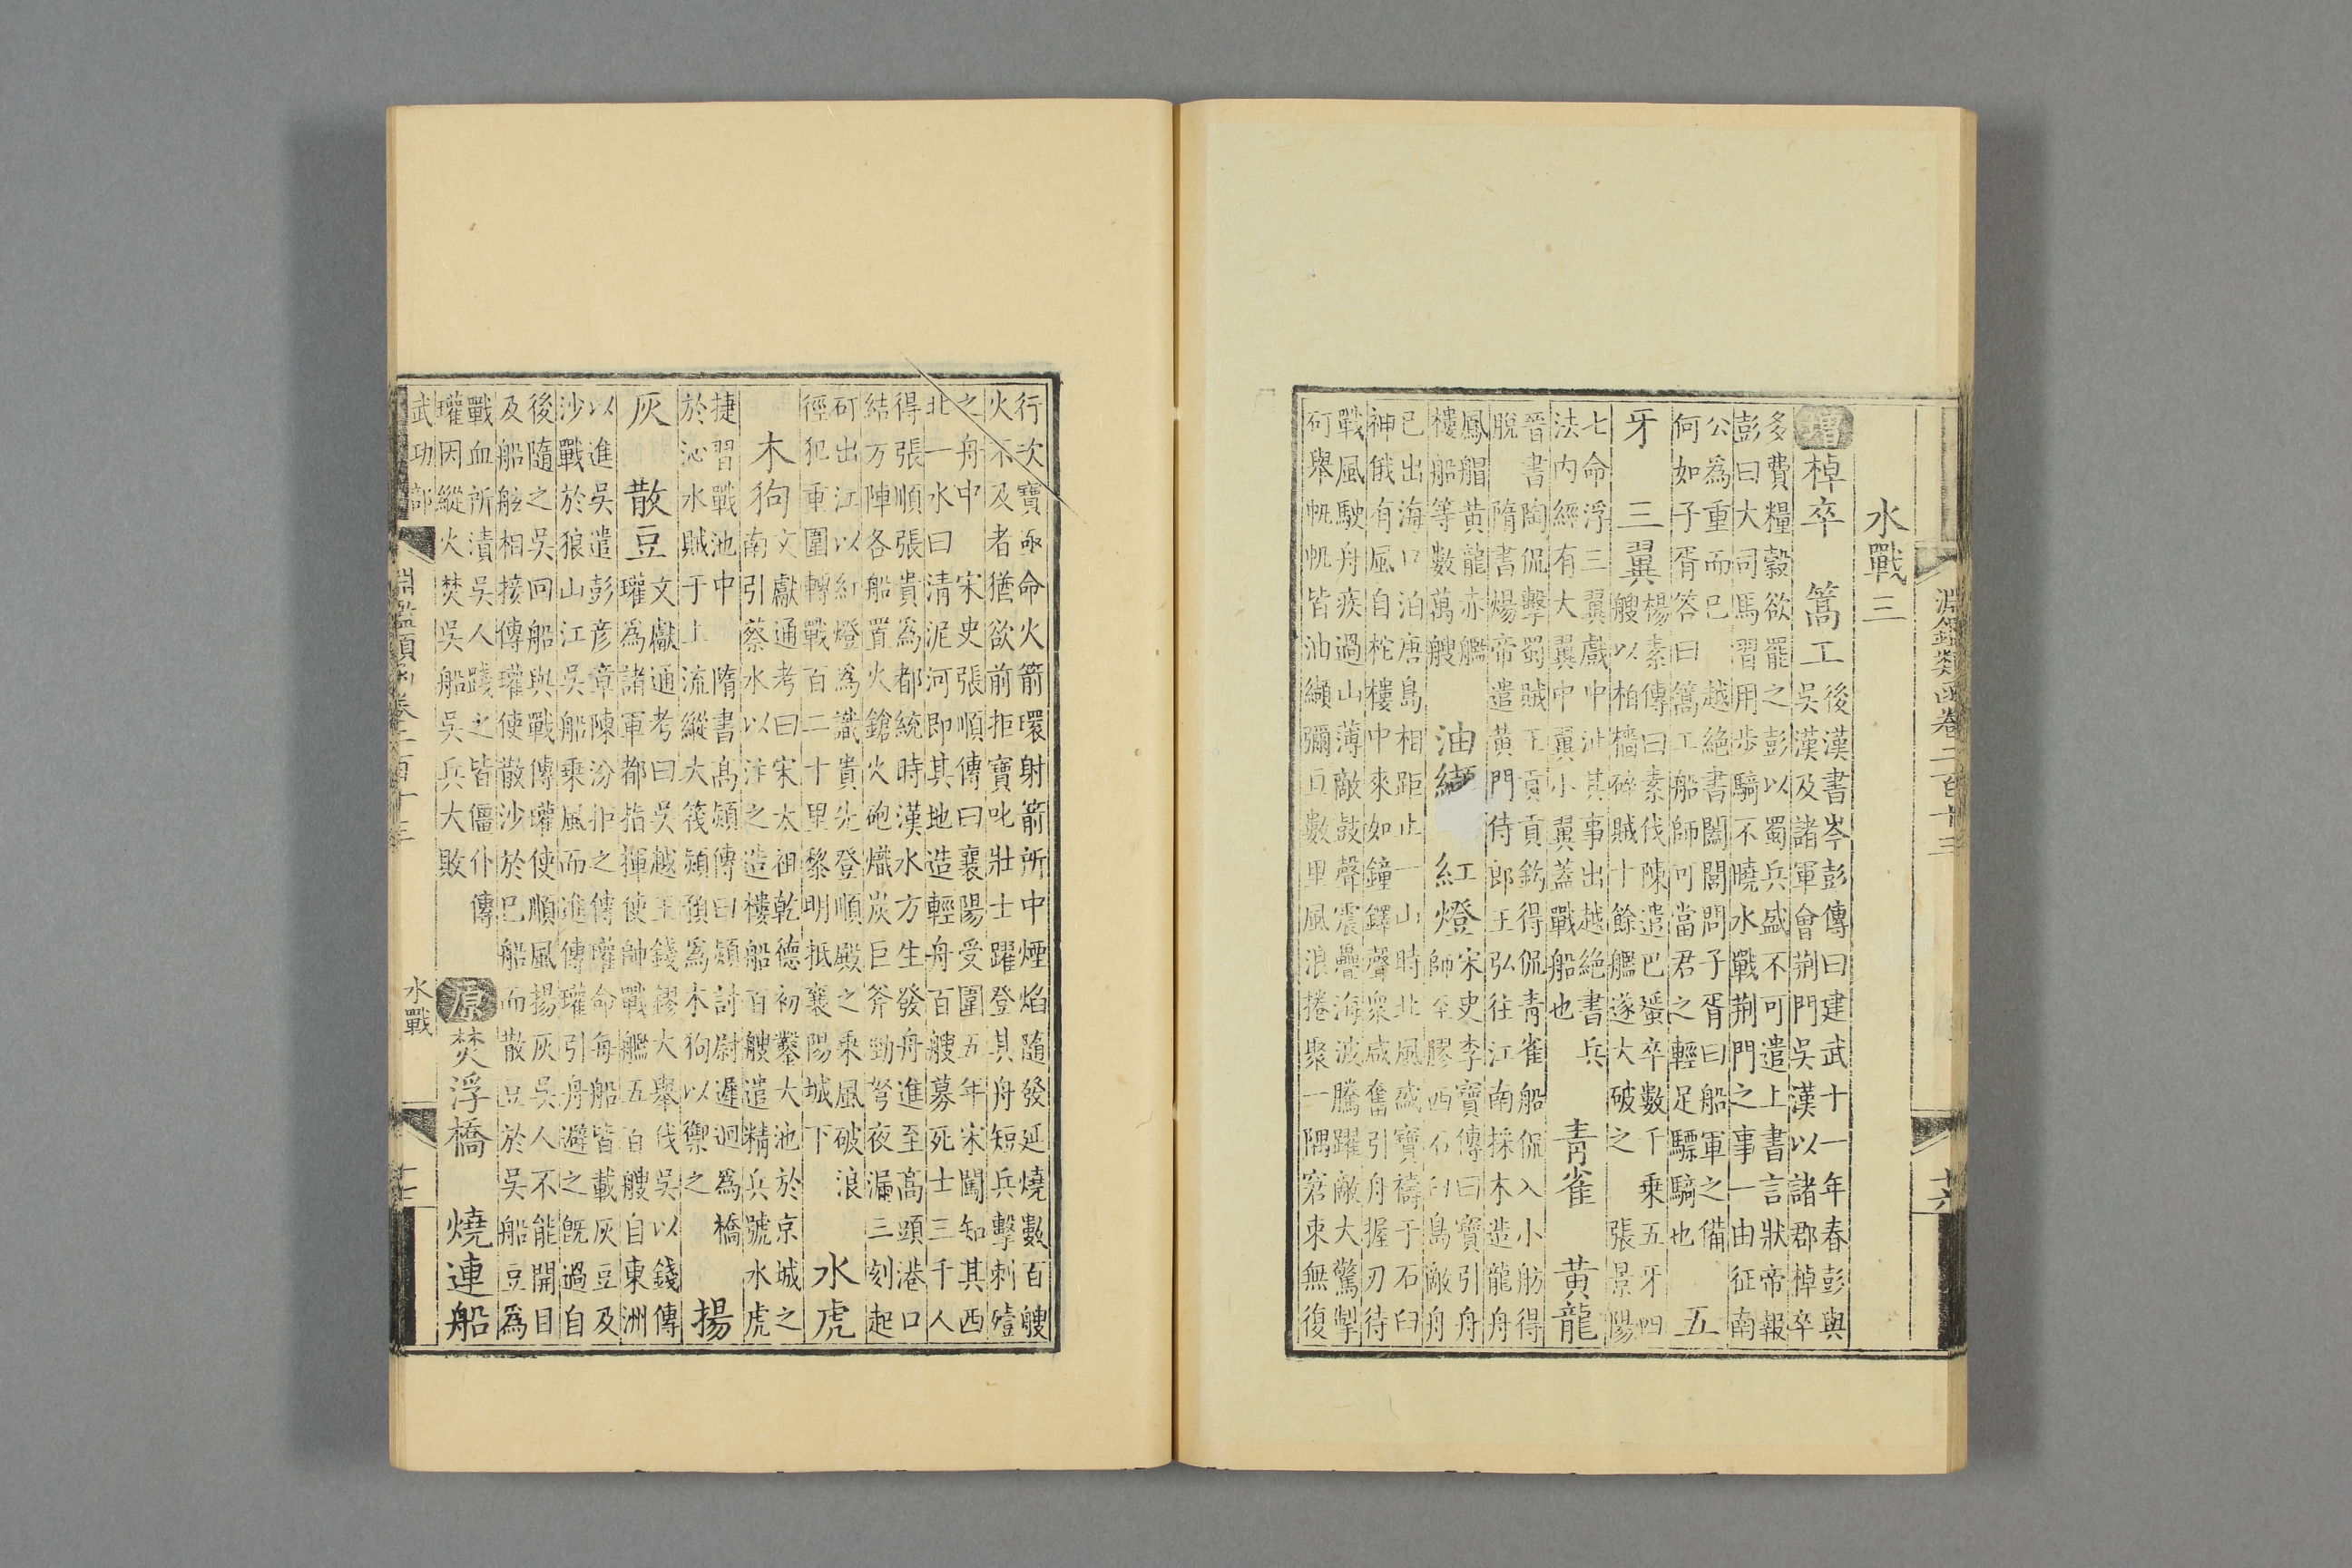 淵鑑類函卷二百十三 十六
水戰三
增 棹卒 篙工 後漢書岑彭傳曰建武十一年春彭與
吳漢及諸軍會荆門吳漢以諸郡棹卒
多費糧穀欲罷之彭以蜀兵盛不可遣上書言狀帝報
彭曰大司馬習用步騎不曉水戰荆門之事一由征南
公為重而已 越絶書闔閭問子胥曰船軍之備
何如子胥答曰篙工船師可當君之輕足驃騎也 五
牙 三翼 楊素傳曰素伐陳遣巴蜑卒數千乘五牙四
艘以柏檣碎賊十餘艦遂大破之 張景陽
七命浮三翼戲中沚其事出越絶書兵
法内經有大翼中翼小翼蓋戰船也 青雀 黃龍
晉書陶侃擊蜀賊王貢貢鈎得侃青雀船侃入小舫得
脫 隋書煬帝遣黃門侍郎王弘往江南採木造龍舟
鳳䑽黃龍赤艦
樓船等數萬艘 油纈 紅燈 宋史李寶傳曰寶引舟
師至膠西石臼島敵舟
已出海口泊唐島相距止一山時北風盛寶禱于石臼
神俄有風自柁樓中來如鐘鐸聲衆咸奮引舟握刃待
戰風駛舟疾過山薄敵鼓聲震疊海波騰躍敵大驚掣
矴舉帆帆皆油纈彌亘數里風浪捲聚一隅窘束無復
行次寶亟命火箭環射箭所中煙焰隨發延燒數百艘
火不及者猶欲前拒寶叱壯士躍登其舟短兵擊刺殪
之舟中 宋史張順傳曰襄陽受圍五年宋闖知其西
北一水曰清泥河即其地造輕舟百艘募死士三千人
得張順張貴爲都統時漢水方生發舟進至高頭港口
結方陣各船置火鎗火砲熾炭巨斧勁弩夜漏三刻起
矴出江以紅燈爲識貴先登順殿之乘風破浪
徑犯重圍轉戰百二十里黎明抵襄陽城下 水虎
木狗 文獻通考曰宋太祖乾德初鑿大池於京城之
南引蔡水以注之造樓船百艘遣精兵號水虎
捷習戰池中 隋書高熲傳曰熲討尉遲迥爲橋
於沁水賊于上流縱大筏熲預爲木狗以禦之 揚
灰 散豆 文獻通考曰吳越王錢鏐大舉伐吳以錢傳
瓘爲諸軍都指揮使帥戰艦五百艘自東洲
以進吳遣彭彥章陳汾拒之傳瓘命每船皆載灰豆及
沙戰於狼山江吳船乘風而進傳瓘引舟避之既過自
後隨之吳回船與戰傳瓘使順風揚灰吳人不能開目
及船舷相接傳瓘使散沙於已船而散豆於吳船豆爲
戰血所漬吳人踐之皆僵仆傳
瓘因縱火焚吳船吳兵大敗 原 焚浮橋 燒連船
武功部 淵鑑類函卷二百十三 水戰